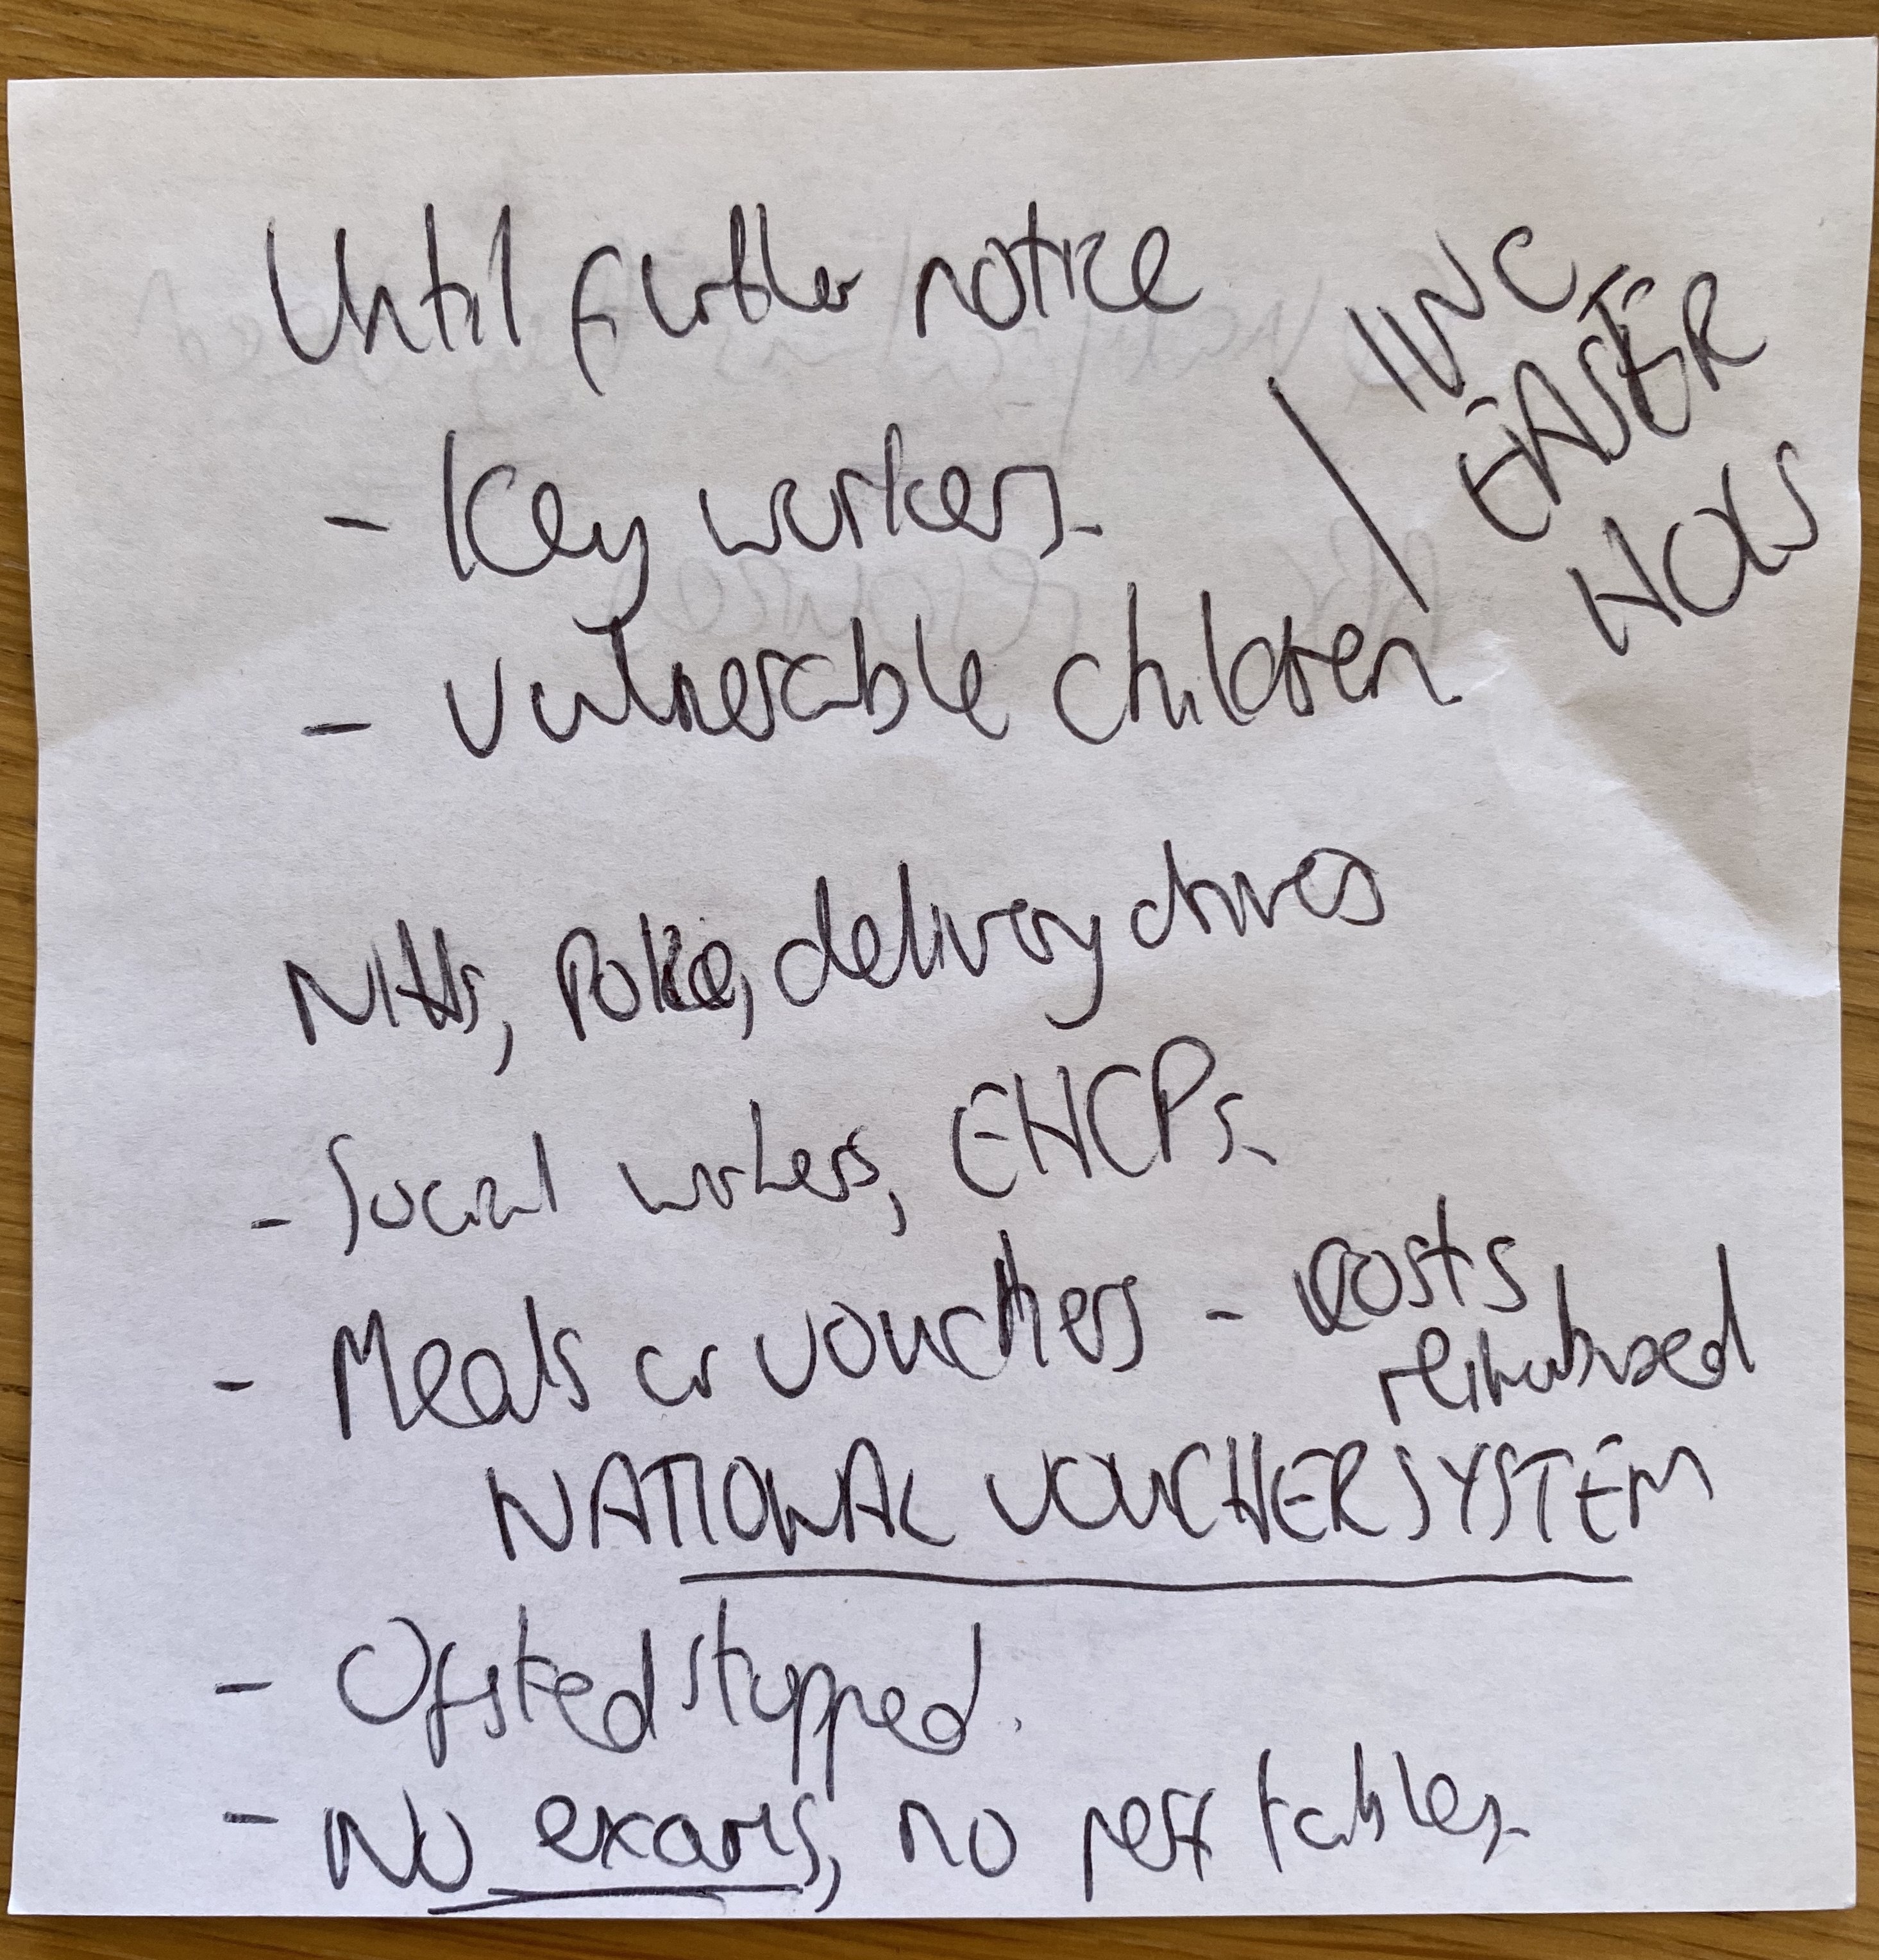 Until further notice
- Key workers
- Vulnerable children
INC
EASTER
HOLS
NHS, Police, delivery drivers
- Social workers, EHCPs
- Meals or vouchers - costs
reimbursed
NATIONAL VOUCHER SYSTEM
- Ofsted stopped.
- No exams, no perf tables